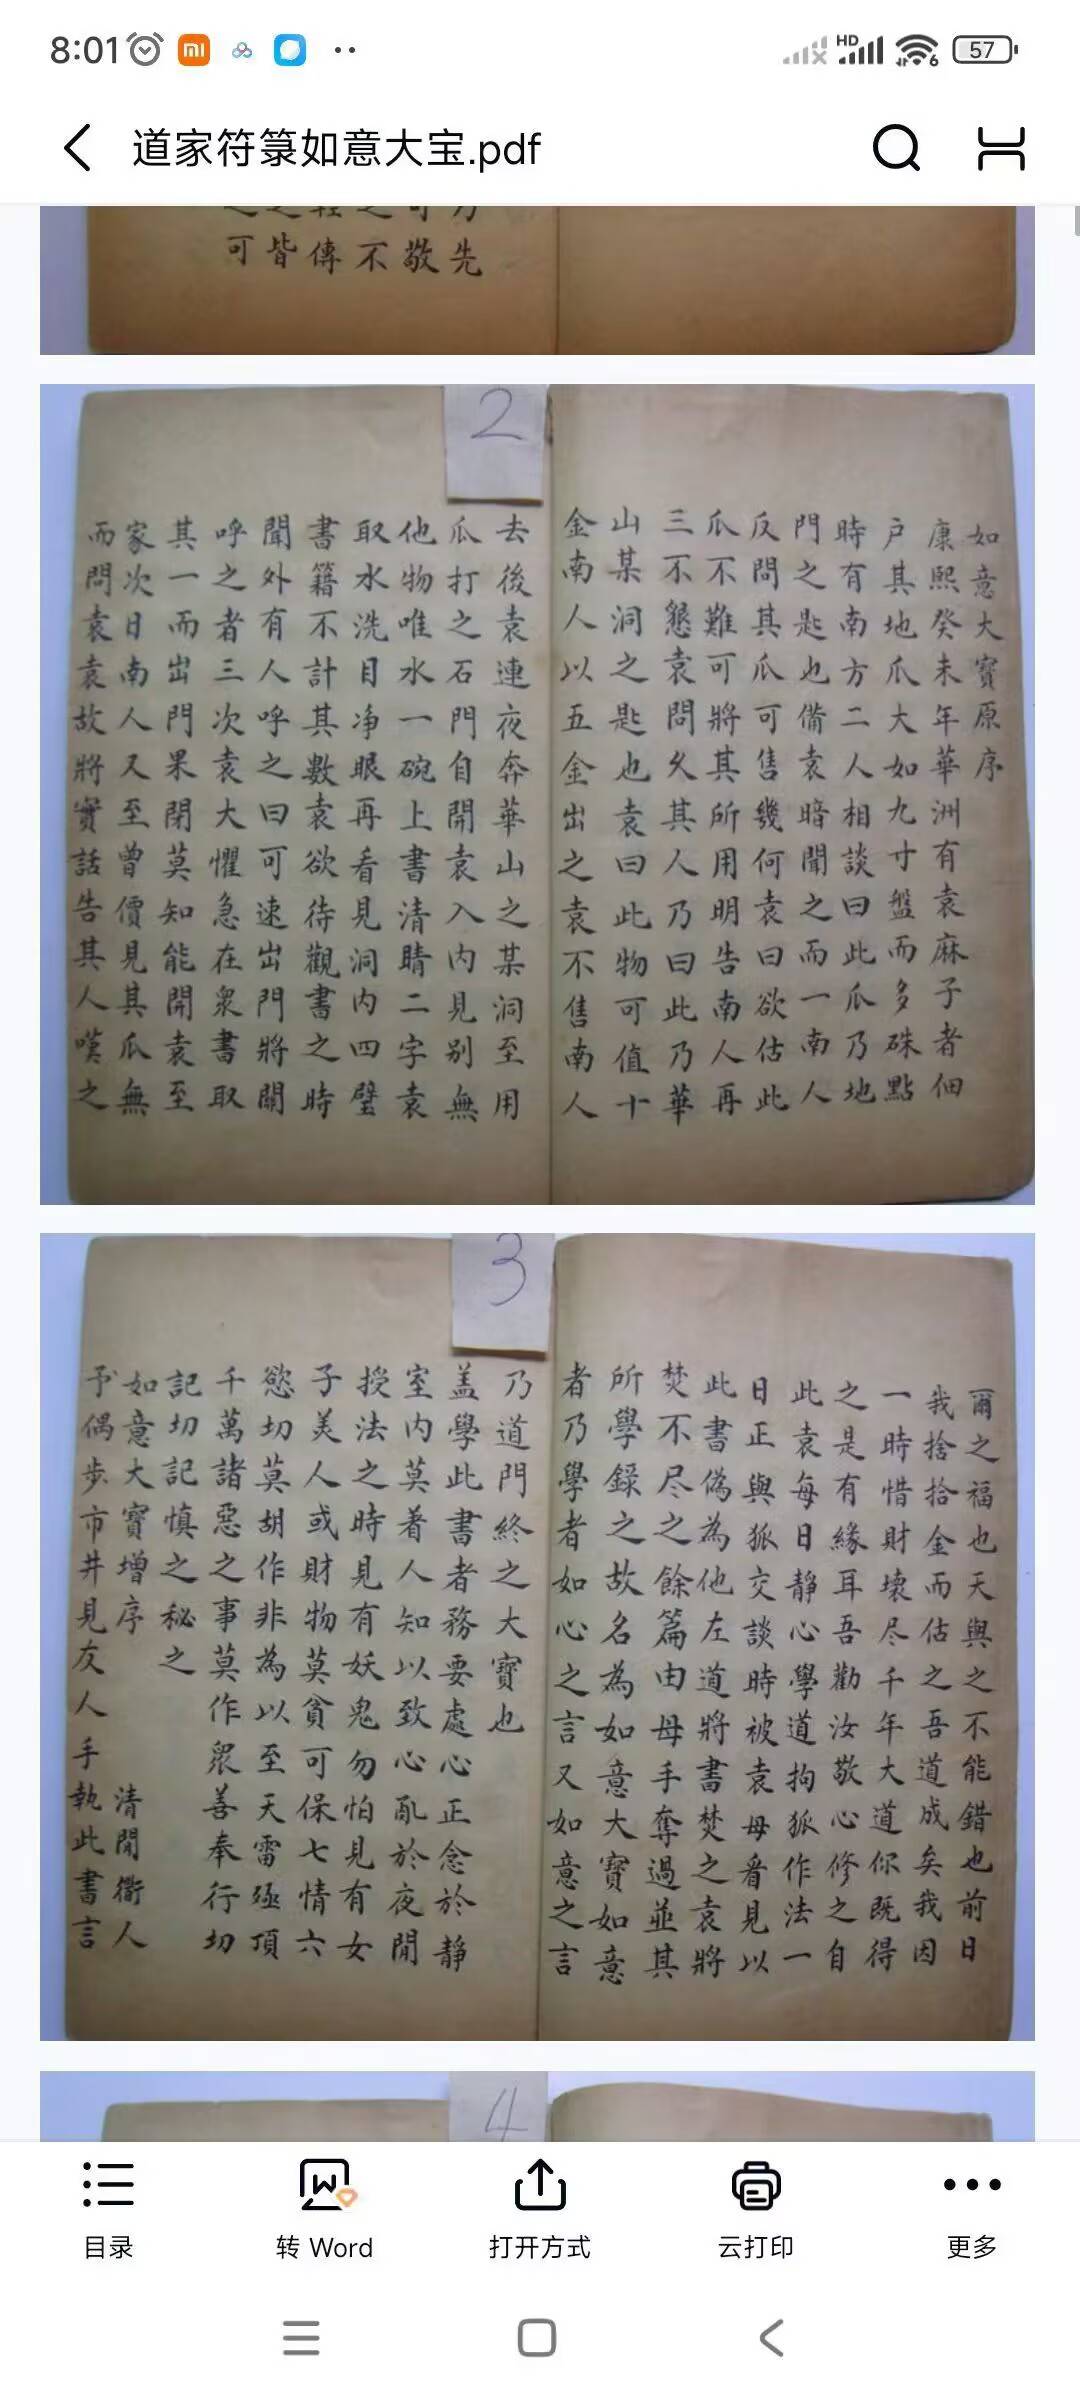 8:01
HD
6
57
道家符箓如意大宝.pdf
先
敬
不
傳
皆
可
2
如意大寶原序
康熙癸未年華洲有袁麻子者佃
户其地爪大如九寸盤而多硃點
時有南方二人相談曰此爪乃地
門之匙也備袁暗聞之而一南人
反問其爪可售幾何袁曰欲估此
爪不難可將其所用明告南人再
三不懇袁問久其人乃曰此乃華
山某洞之匙也袁曰此物可值十
金南人以五金出之袁不售南人
去後袁連夜奔華山之某洞至用
瓜打之石門自開袁入内見别無
他物唯水一碗上書清睛二字袁
取水洗目净眼再看見洞内四壁
書籍不計其數袁欲待觀書之時
聞外有人呼之曰可速出門將關
呼之者三次袁大懼急在衆書取
其一而出門果閉莫知能開袁至
家次日南人又至曾價見其瓜無
而問袁袁故將實話告其人嘆之
3
爾之福也天與之不能錯也前日
我捨拾金而估之吾道成矣我因
一時惜財壞尽千年大道你既得
之是有緣耳吾勸汝敬心修之自
此袁每日静心學道拘狐作法一
日正與狐交談時被袁母看見以
此書偽為他左道將書焚之袁將
焚不尽之餘篇由母手奪過並其
所學錄之故名為如意大寶如意
者乃學者如心之言又如意之言
乃道門終之大寶也
盖學此書者務要處心正念於静
室内莫着人知以致心亂於夜閒
授法之時見有妖鬼勿怕見有女
子美人或財物莫貪可保七情六
慾切莫胡作非為以至天雷殛頂
千萬諸惡之事莫作眾善奉行切
記切記慎之秘之
如意大寶增序 清閒衢人
予偶步市井見友人手執此書言
4
目录
转 Word
打开方式
云打印
更多